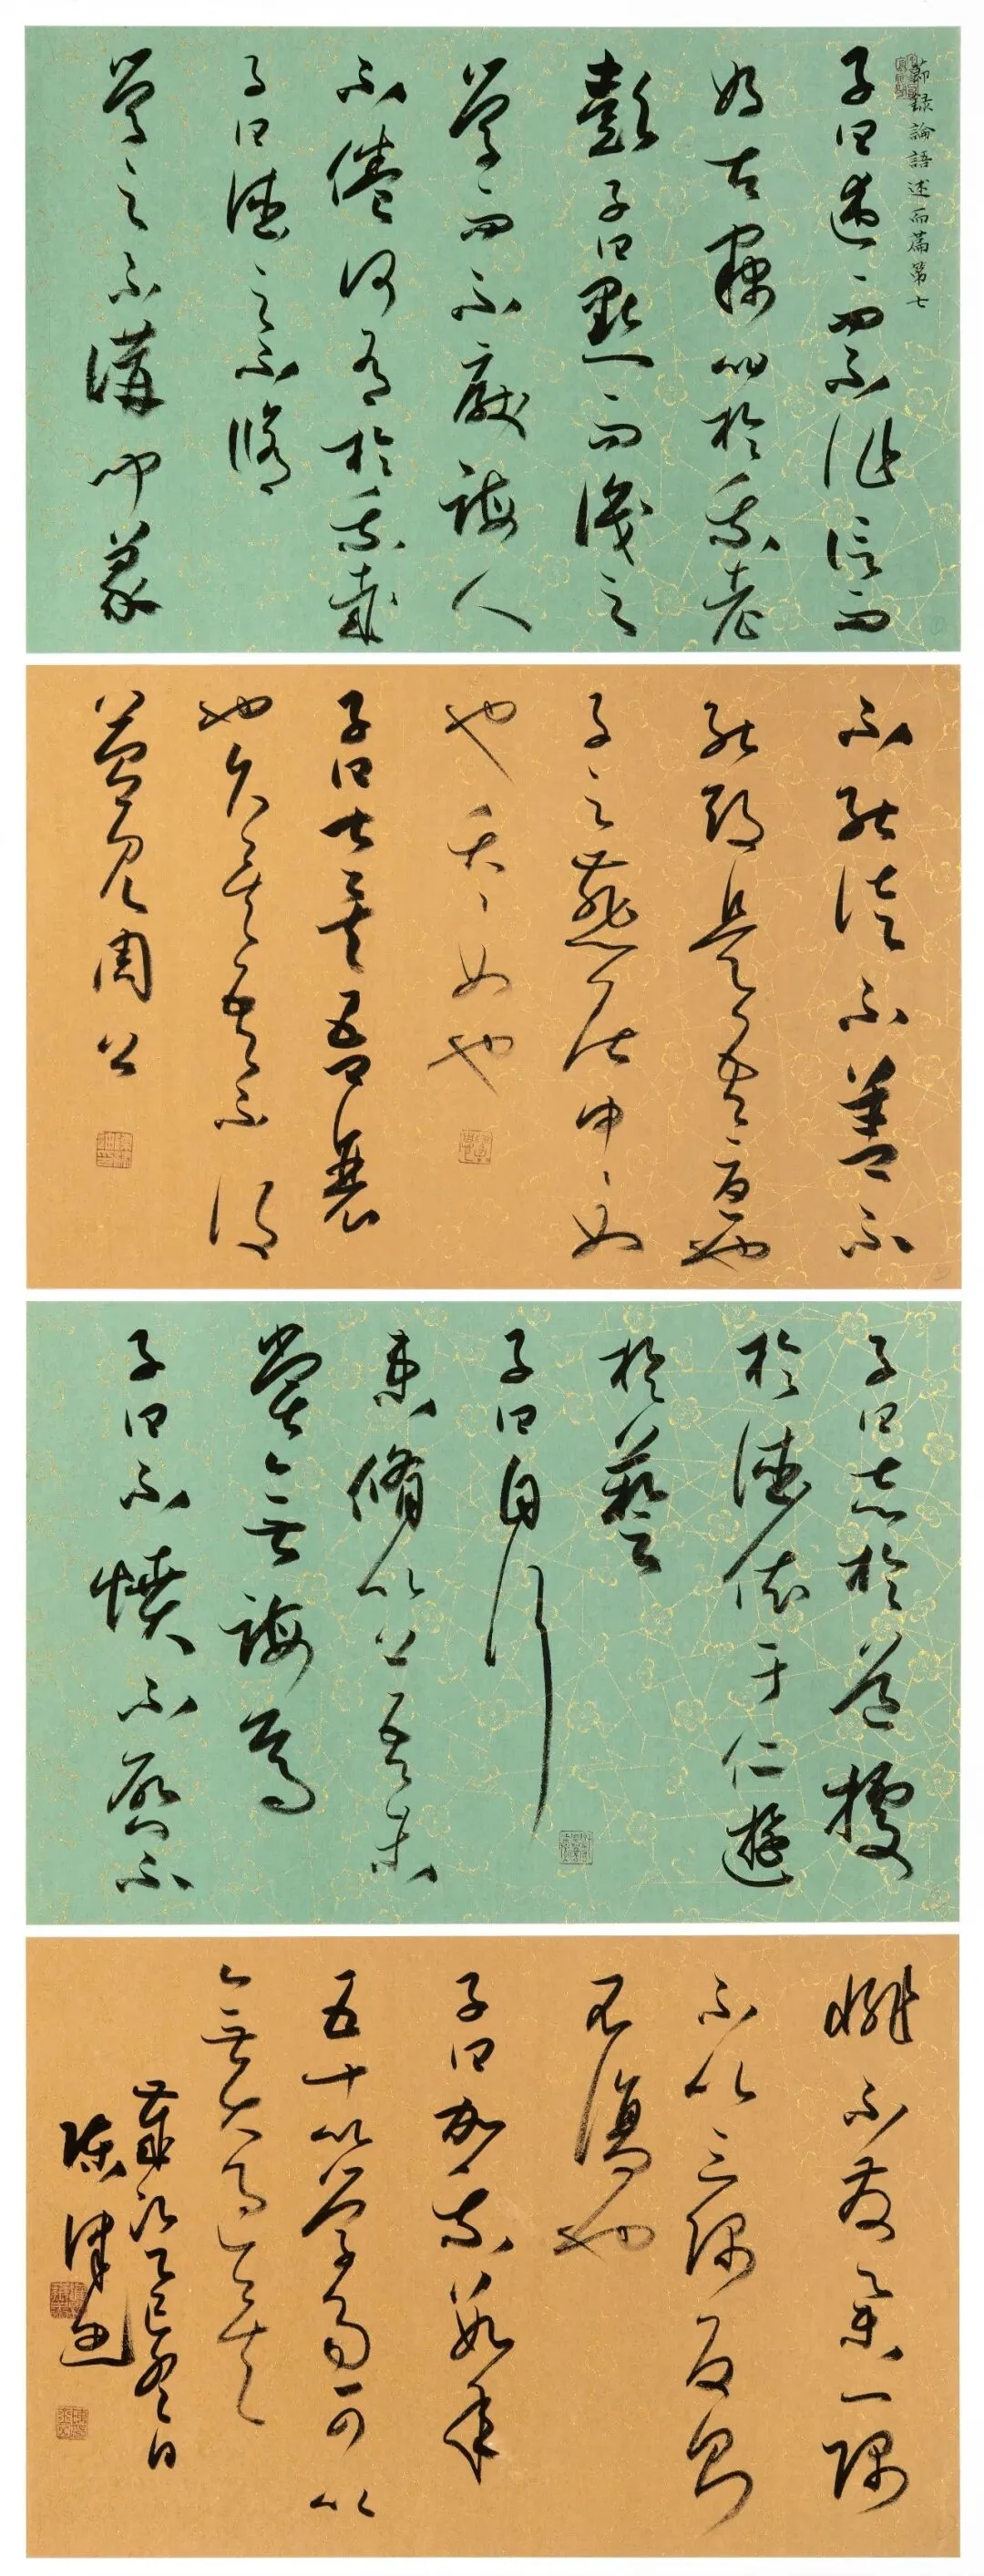 節録論語述而篇第七
子曰述而不作信而
好古竊比於我老
彭子曰默而識之
學而不厭誨人
不倦何有於我哉
子曰德之不脩
學之不講聞義
不能徙不善不
能改是吾憂也
子之燕居申〻如
也夭〻如也
子曰甚矣吾衰
也久矣吾不復
夢見周公
子曰志於道據
於德依于仁遊
於藝
子曰自行
束脩以上吾未
嘗無誨焉
子曰不憤不啓不
悱不發舉一隅
不以三隅反則
不復也
子曰加我數年
五十以學易可以
無大過矣
歲次乙巳冬日
陳津書